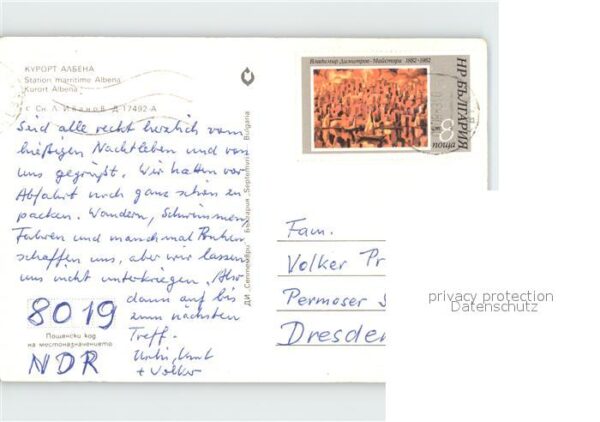 КУРОРТ АЛБЕНА
Station maritime Albena
Kurort Albena
с Сн. Л. Иванов Д-17492-А
Seid alle recht herzlich vom
hießigen Nachtleben und von
uns gegrüßt. Wir hatten vor
Abfahrt noch ganz schön zu
packen. Wandern, Schwimmen,
Fahren und manchmal
schaffen uns, aber wir lassen
uns nicht unterkriegen. Also
dann auf bis
zum nächsten
Treff.
+ Volker
8019
Пощенски код
на местоназначението
NDR
ДИ „Септември" България „Septemvri" Bulgaria
Владимир Димитров-Майстора 1882-1982
НР БЪЛГАРИЯ
8
поща
Fam.
Volker Pr
Permoser S
Dresden
privacy protection
Datenschutz